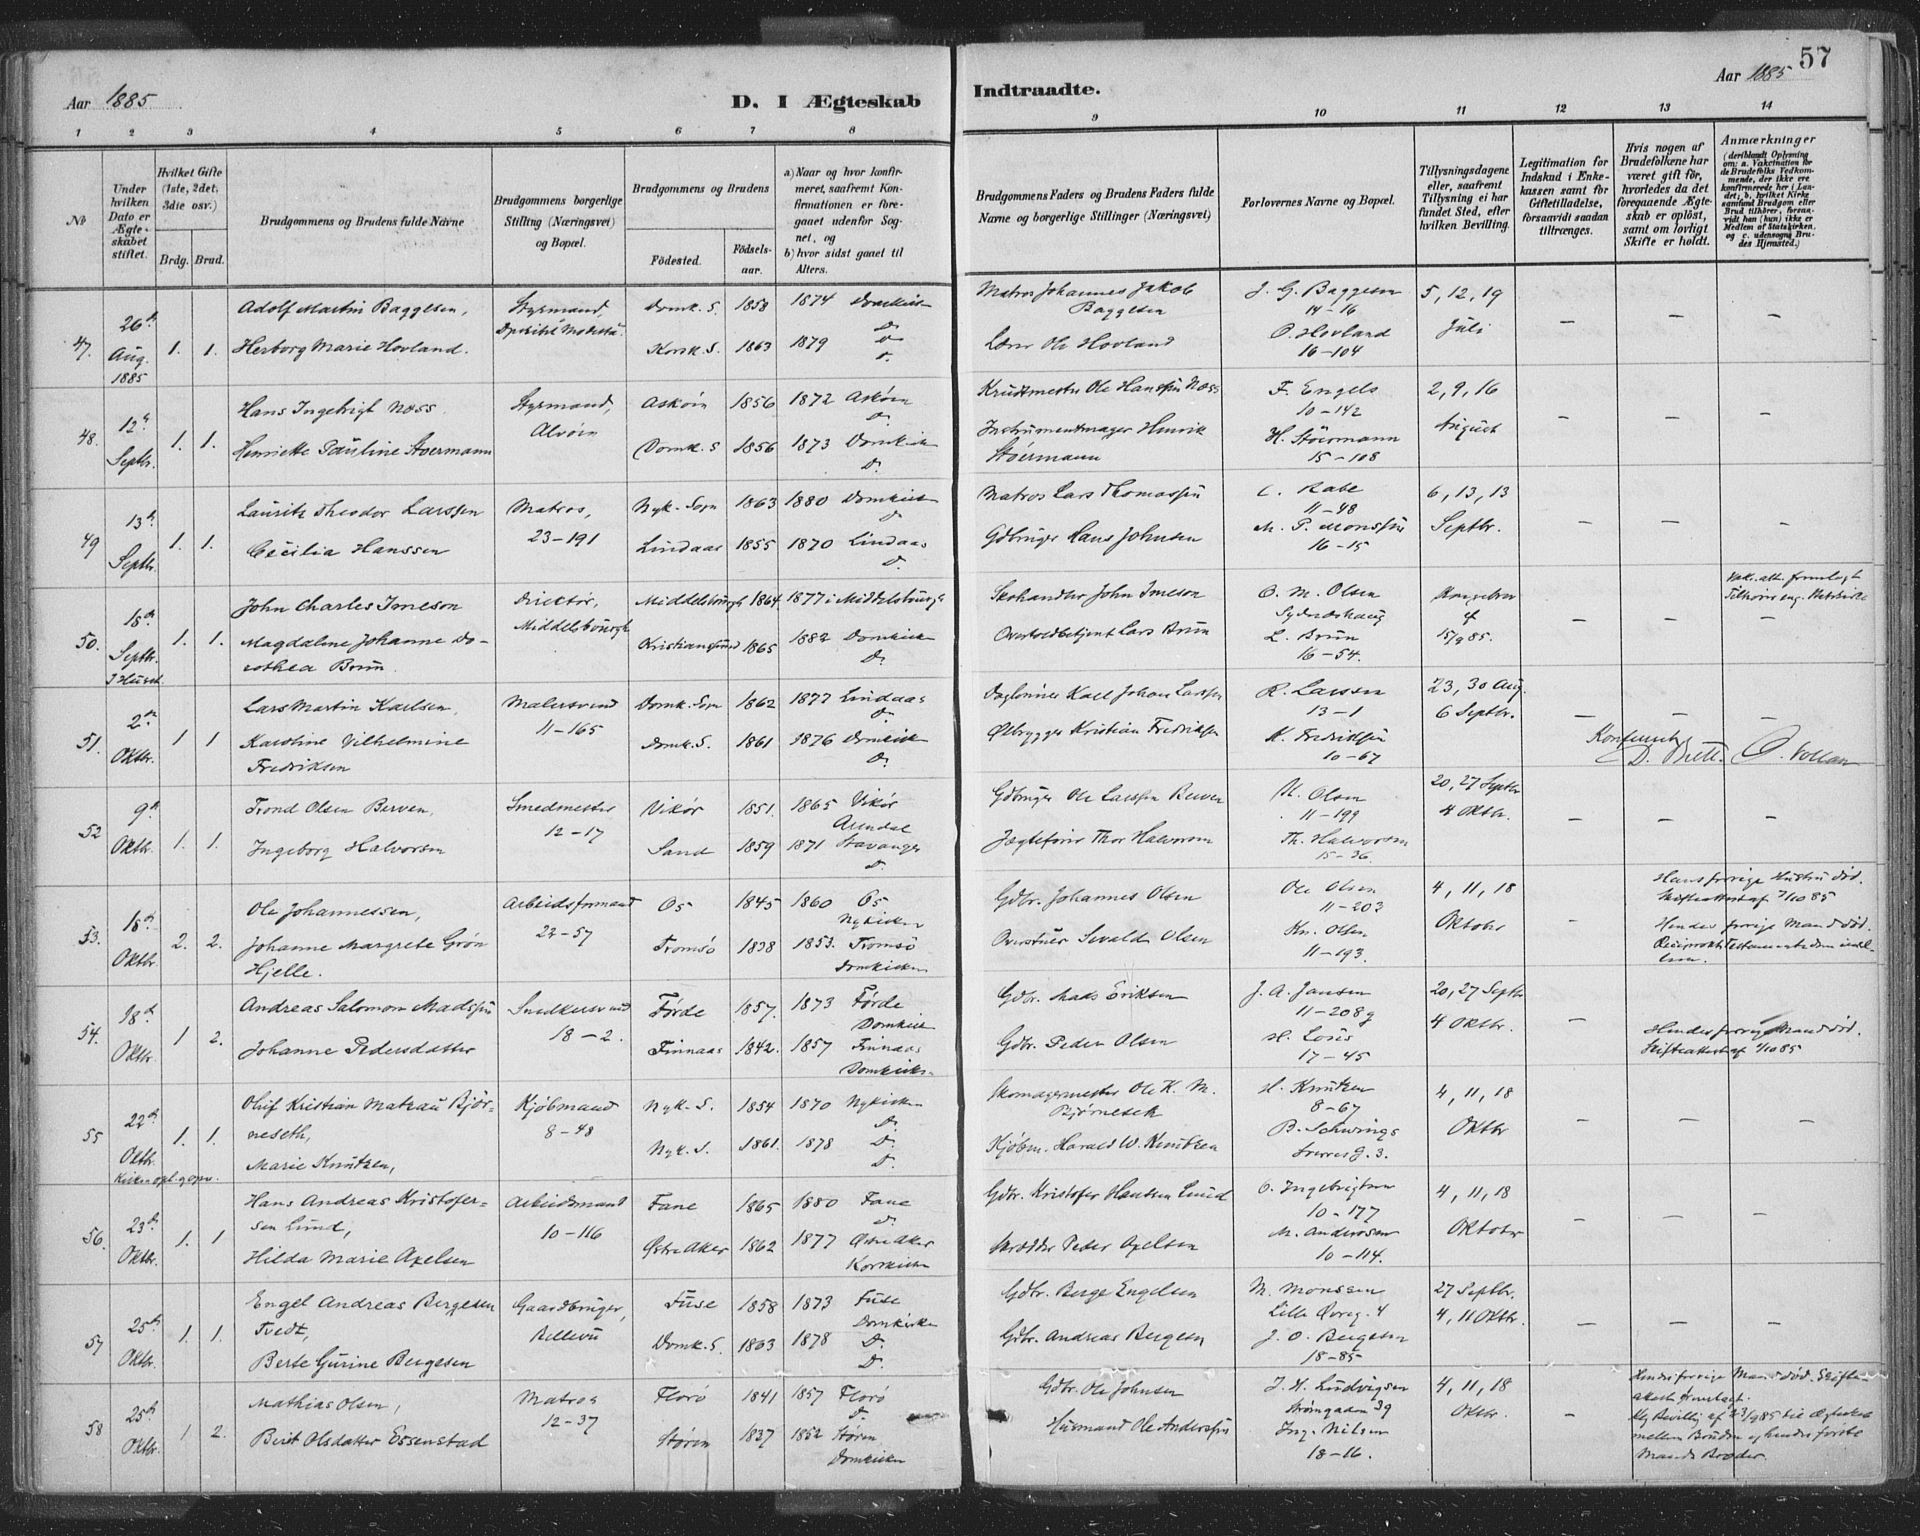 57
Aar 1885
Aar 1885
D. I Ægteskab Indtraadte.
1 2 3 4 5 6 7 8 9 10 11 12 13 14
No
Under hvilken Dato er Ægteskabet stiftet.
Hvilket Gifte (1ste, 2det, 3die osv.)
Brdg. Brud.
Brudgommens og Brudens fulde Navne
Brudgommens borgerlige Stilling (Næringsvei) og Bopæl.
Brudgommens og Brudens
Födested. Födselsaar.
a) Naar og hvor konfirmeret, saafremt Konfirmationen er foregaaet udenför Sognet, og
b) hvor sidst gaaet til Alters.
Brudgommens Faders og Brudens Faders fulde Navne og borgerlige Stillinger (Næringsvei)
Forlovernes Navne og Bopæl.
Tillysningsdagene eller, saafremt Tillysning ei har fundet Sted, efter hvilken Bevilling.
Legitimation for Indskud i Enkekassen samt for Giftetilladelse, forsaavidt saadan tiltrænges.
Hvis nogen af Brudefolkene har været gift för, hvorledes da det foregaaende Ægteskab er oplöst, samt om lovligt Skifte er holdt.
Anmærkninger
47. 26de Aug. 1885 1. 1.
Adolf Martin Baggesen,
Herborg Marie Hovland.
Styrmand,
Domk. S. 1858 1874 Domkirk
Korsk. S. 1863 1879 Do
Matros Johannes Jakob Baggesen
Lærer Ole Hovland
J. G. Baggesen
14-16
O. Hovland
16-104
5, 12, 19
Juli
48. 12te Septbr. 1. 1.
Hans Ingebrigt Næss.
Henriette Pauline Støermann
Styrmand,
Alvøen
Askøen 1856 1872 Askøen
Domk. S 1856 1873 Domkirk
Krudtmester Ole Hanssen Næss
Instrumentmager Henrik Støermann
F. Engels
10-142
H. Støermann
15-108
2, 9, 16
August
49 13de Septbr. 1. 1.
Lauritz Theodor Larssen
Cecilia Hanssen
Matros,
23-191
Nyk. Sogn 1863 1880 Domkirk
Lindaas 1855 1870 Lindaas
Matros Lars Thomassen
Gdbruger Hans Johnsen
C. Rabe
11-48
M. P. Monssen
16-15
6, 13, 13
Septbr.
50. Septbr. 1. 1.
John Charles Imeson
Magdalene Johanne Dorothea Brun.
Direktør,
Middelsbourgh
Middelsbourgh 1864 1877 i Middelsbourgh
Kristianssund 1865 1882 Domkirk
Skohandler John Imeson
Overtoldbetjent Lars Brun
O. M. Olsen
Sydneshaug
L. Brun
16-54.
Kongebrev
af
15/9 85.
51. 2den Oktbr. 1 1
Lars Martin Karlsen,
Karoline Vilhelmine
Fredriksen
Malersvend
11-165
Domk. Sogn 1862 1877 Lindaas
Domk. S. 1861 1876 Domkirk
Daglønner Karl Johan Larssen
Ølbrygger Kristian Fredriksen
R. Larssen
13-1
K. Fredriksen
10-67
23, 30 Aug.
6 Septbr.
52 9de Oktbr. 1. 1.
Trond Olsen Berven,
Ingeborg Halvorsen
Smedmester
12-17
Vikør 1851. 1865 Vikør
Arendal
Sand 1859 1871 Stavanger
Gdbruger Ole Larssen Berven
Jægtefører Thor Halvorsen
N. Olsen
11-199
Th. Halvorsen
15-36.
20, 27 Septbr
4 Oktbr.
53. 18de Oktbr. 2. 2.
Ole Johannessen,
Johanne Margrete Grøn
Hjelle.
Arbeidsformand
22-57
Os 1845 1860 Os
Nykirken
Tromsø 1838 1853. Tromsø
Domkirken
Gdbr. Johannes Olsen
Sevald Olsen
Ole Olsen
11-203
Kn. Olsen
11-193.
4, 11, 18
Oktober
Hans forrige Hustru død.
Hendes forrige Mand død.
54. 18de Oktbr. 1 2.
Andreas Salomon Madssen
Johanne Pedersdatter
Snedkersvend
18-2.
Førde 1857. 1873 Førde
Domkirk
Finnaas 1842. 1857 Finnaas
Domkirk.
Gdbr. Mads Eriksen
Gdbr. Peder Olsen
J. A. Jansen
11-208g
H. Losis
17-45
20, 27 Septbr
4 Oktbr.
Hendes forrige Mand død.
Skifteattest af 1/10 85
55 22de Oktbr. 1. 1.
Oluf Kristian Matzau Bjørneseth,
Marie Knutzen,
Kjøbmand
8-48
Nyk. S. 1854 1870 Nykirken
Nyk. S. 1861. 1878 Do
Skomagermester Ole K. M.
Bjørneseth
Kjøbm. Harald W. Knutzen
H. Knutzen
8-67
B. Schwings
Sverres G. 3.
4, 11, 18
Oktbr
56. 23de Oktbr. 1. 1
Hans Andreas Kristofersen Lund,
Hilda Marie Axelsen
Arbeidsmand
10-116
Fane 1865 1880 Fane
Østre Aker 1862 1877 Østre Aker
Korskirken
Gdbr. Kristofer Hansen Lund
Skrædder Peder Axelsen
O. Ingebrigtsen
10-177
M. Anderssen
10-114.
4, 11, 18
Oktober
57 25de Oktbr. 1. 1.
Engel Andreas Bergesen
Tvedt,
Berte Gurine Bergesen
Gaardbruger,
Bellevu
Fuse 1858 1873 Fuse
Domkirken
Domk. S. 1863 1878 Do
Gdbr. Berge Engelsen
Gdbr. Andreas Bergesen
M. Monssen
Lille Øvreg. 4
J. O. Bergesen
18-85
27 Septbr.
4, 11 Oktbr.
58 25de Oktbr. 1 2.
Mathias Olsen,
Berit Olsdatter Essenstad
Matros
12-37
Florø 1841 1857 Florø
Støren 1837 1852 Støren
Domkirken
Gdbr. Ole Johnsen
Husmand Ole Anderssen
J. H. Ludvigsen
Strømgaden 39
Ing. Nilsen
18-16.
4, 11, 18
Oktbr.
Hendes forrige Mand død.